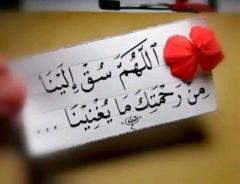 اَللَّهُمَّ سُقْ إِلَيْنَا
مِنْ رَحْمَتِكَ مَا يُغْنِينَا ...